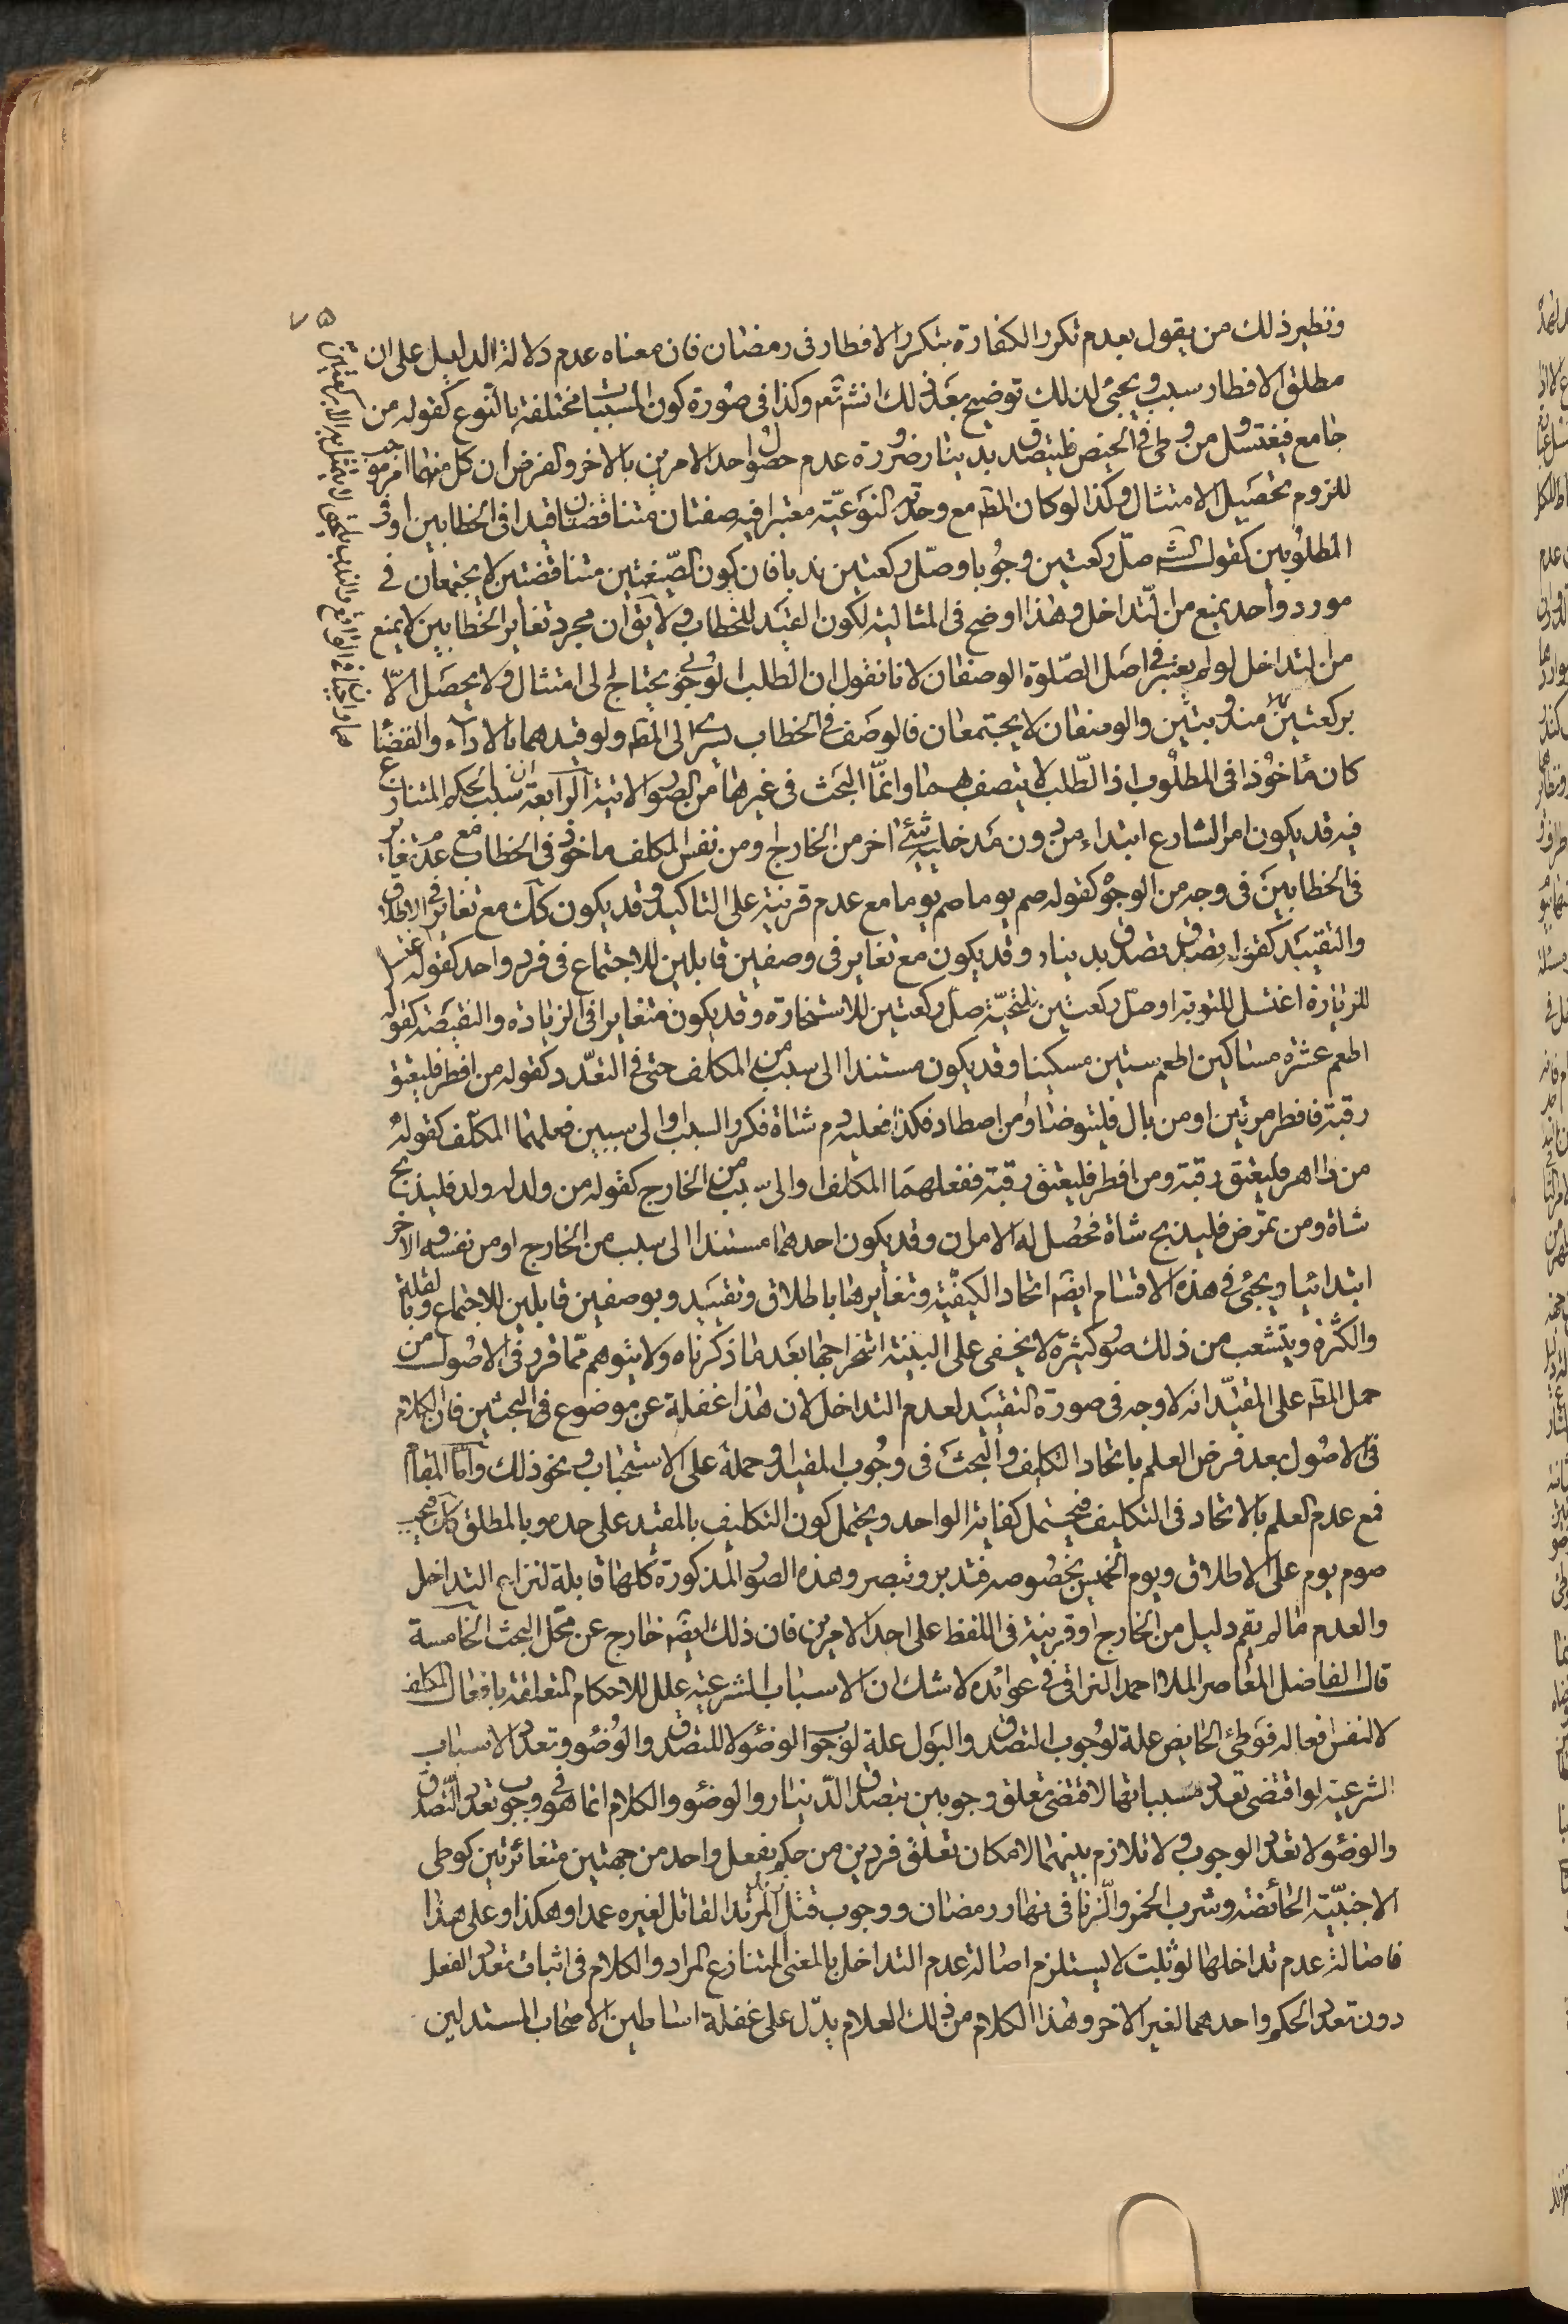 ۷۵
ونظير ذلك من يقول بعدم تكرر الكفارة بتكرر الافطار فى رمضان فان معناه عدم دلالة الدليل على ان
مطلق الافطار سبب ويجئ لذلك توضيح بعد ذلك انشاء الله تعم وكذا فى صورة كون المسببات مختلفة بالنوع كقوله من
جامع فيغتسل ومن وطئ فى الحيض فليتصدق بدينار ضرورة عدم حصول احد الامرين بالاخر والفرض ان كل منهما امر موجب
للزوم تحصيل الامتثال وكذا لو كان المط مع وحدته النوعيّة معتبرا فيه صفتان متناقضتان قيدا فى الخطابين او فى
المطلوبين كقول الش صلّ ركعتين وجوبا وصلّ ركعتين ندبا فان كون الصّيغتين متناقضتين لا يجتمعان فى
مورد واحد يمنع من التّداخل وهذا اوضح فى المثالية لكون القيد للخطاب ولا يق ان مجرد تغاير الخطابين لا يمنع
من التداخل لو لم يعتبر فى اصل الصّلوة الوصفان لانا نقول ان الطلب الوجوبى يحتاج الى امتثال ولا يحصل الّا
بركعتين مندوبتين والوصفان لا يجتمعان فالوصف فى الخطاب يسرى الى المط ولو قيدهما بالاداء والقضاء
كان ماخوذا فى المطلوب اذ الطّلب لا يتصف بهما وانمّا البحث فى غيرها من الصور الاتية الرابعة ان سبب الحكم المتنازع
فيه قد يكون امر الشارع ابتداء من دون مدخلية شئ اخر من الخارج ومن نفس المكلف ماخوذ فى الخطاب مع عدم تغاير
فى الخطابين فى وجه من الوجوه كقوله صم يوما صم يوما مع عدم قرينة على التاكيد وقد يكون كك مع تغاير فى الاطلاق
والتقييد كقوله تصدق تصدق بدينار وقد يكون مع تغاير فى وصفين قابلين للاجتماع فى فرد واحد كقوله اغتسل
للزيارة اغتسل للتوبة او صلّ ركعتين للتحيّة صلّ ركعتين للاستخارة وقد يكون متغايرا فى الزيادة والنقيصة كقوله
اطعم عشرة مساكين اطعم ستين مسكينا وقد يكون مستندا الى سبب من المكلف حتى فى التعدّد كقوله من افطر فليعتق
رقبة فافطر مرتين او من بال فليتوضا او من اصطاد فكذا فعليه دم شاة فكرر السبب او الى سببين فعلهما المكلف كقوله
من ظاهر فليعتق رقبة ومن افطر فليعتق رقبة ففعلهما المكلف او الى سبب من الخارج كقوله من ولد له ولد فليذبح
شاة ومن تمرض فليذبح شاة فحصل له الامران وقد يكون احدهما مستندا الى سبب من الخارج او من نفسه والاخر
ابتدائيا ويجئ فى هذه الاقسام ايضا اتحاد الكيفيّة وتغايرها باطلاق وتقييد وبوصفين قابلين للاجتماع وبالقلة
والكثرة ويتشعب من ذلك صور كثيرة لا يخفى على البنية استخراجها بعد ما ذكرناه ولا يتوهم ممّا قرر فى الاصول من
حمل المط على المقيّد انه لا وجه فى صورة التقييد لعدم التداخل لان هذا غفلة عن موضوع فى البحثين فان الكلام
فى الاصول بعد فرض العلم باتحاد التكليف والبحث فى وجوب المقيد وحمله على الاستحباب ونحو ذلك وامّا المقام
فمع عدم العلم بالاتحاد فى التكليف فيحتمل كفاية الواحد ويحتمل كون التكليف بالمقيد على حده وبالمطلق كك فيجب
صوم يوم على الاطلاق ويوم الخميس بخصوصه فتدبر وتبصر وهذه الصور المذكورة كلها قابلة لنزاع التداخل
والعدم ما لم يقم دليل من الخارج او قرينة فى اللفظ على احد الامرين فان ذلك ايضا خارج عن محّل البحث الخامسة
قال الفاضل المعاصر الملا احمد النراقى فى عوائده لا شك ان الاسباب الشرعية علل للاحكام المتعلقة بافعال المكلف
لا لنفس افعاله فوطئ الحايض علة لوجوب التصدق والبول علة لوجوب الوضوء لا للتصدق والوضوء وتعدد الاسباب
الشرعية لو اقتضى تعدد مسبباتها لاقتضى تعلق وجوبين بتصدق الدّينار والوضوء والكلام انما هو فى وجوب تعدد التّصدق
والوضوء لا تعدد الوجوب ولا تلازم بينهما لامكان تعلق فردين من حكم بفعل واحد من جهتين متغايرتين كوطى
الاجنبيّة الحائضة وشرب الخمر والزنا فى نهار رمضان ووجوب قتل المرتد القاتل لغيره عمدا وهكذا وعلى هذا
فاصالة عدم تداخلها لو ثبت لا يستلزم اصالة عدم التداخل بالمعنى المتنازع المراد والكلام فى اثبات تعدد الفعل
دون تعدد الحكم واحدهما لغير الاخر وهذا الكلام من ذلك العلام يدّل على غفلة اساطين الاصحاب المستدلين